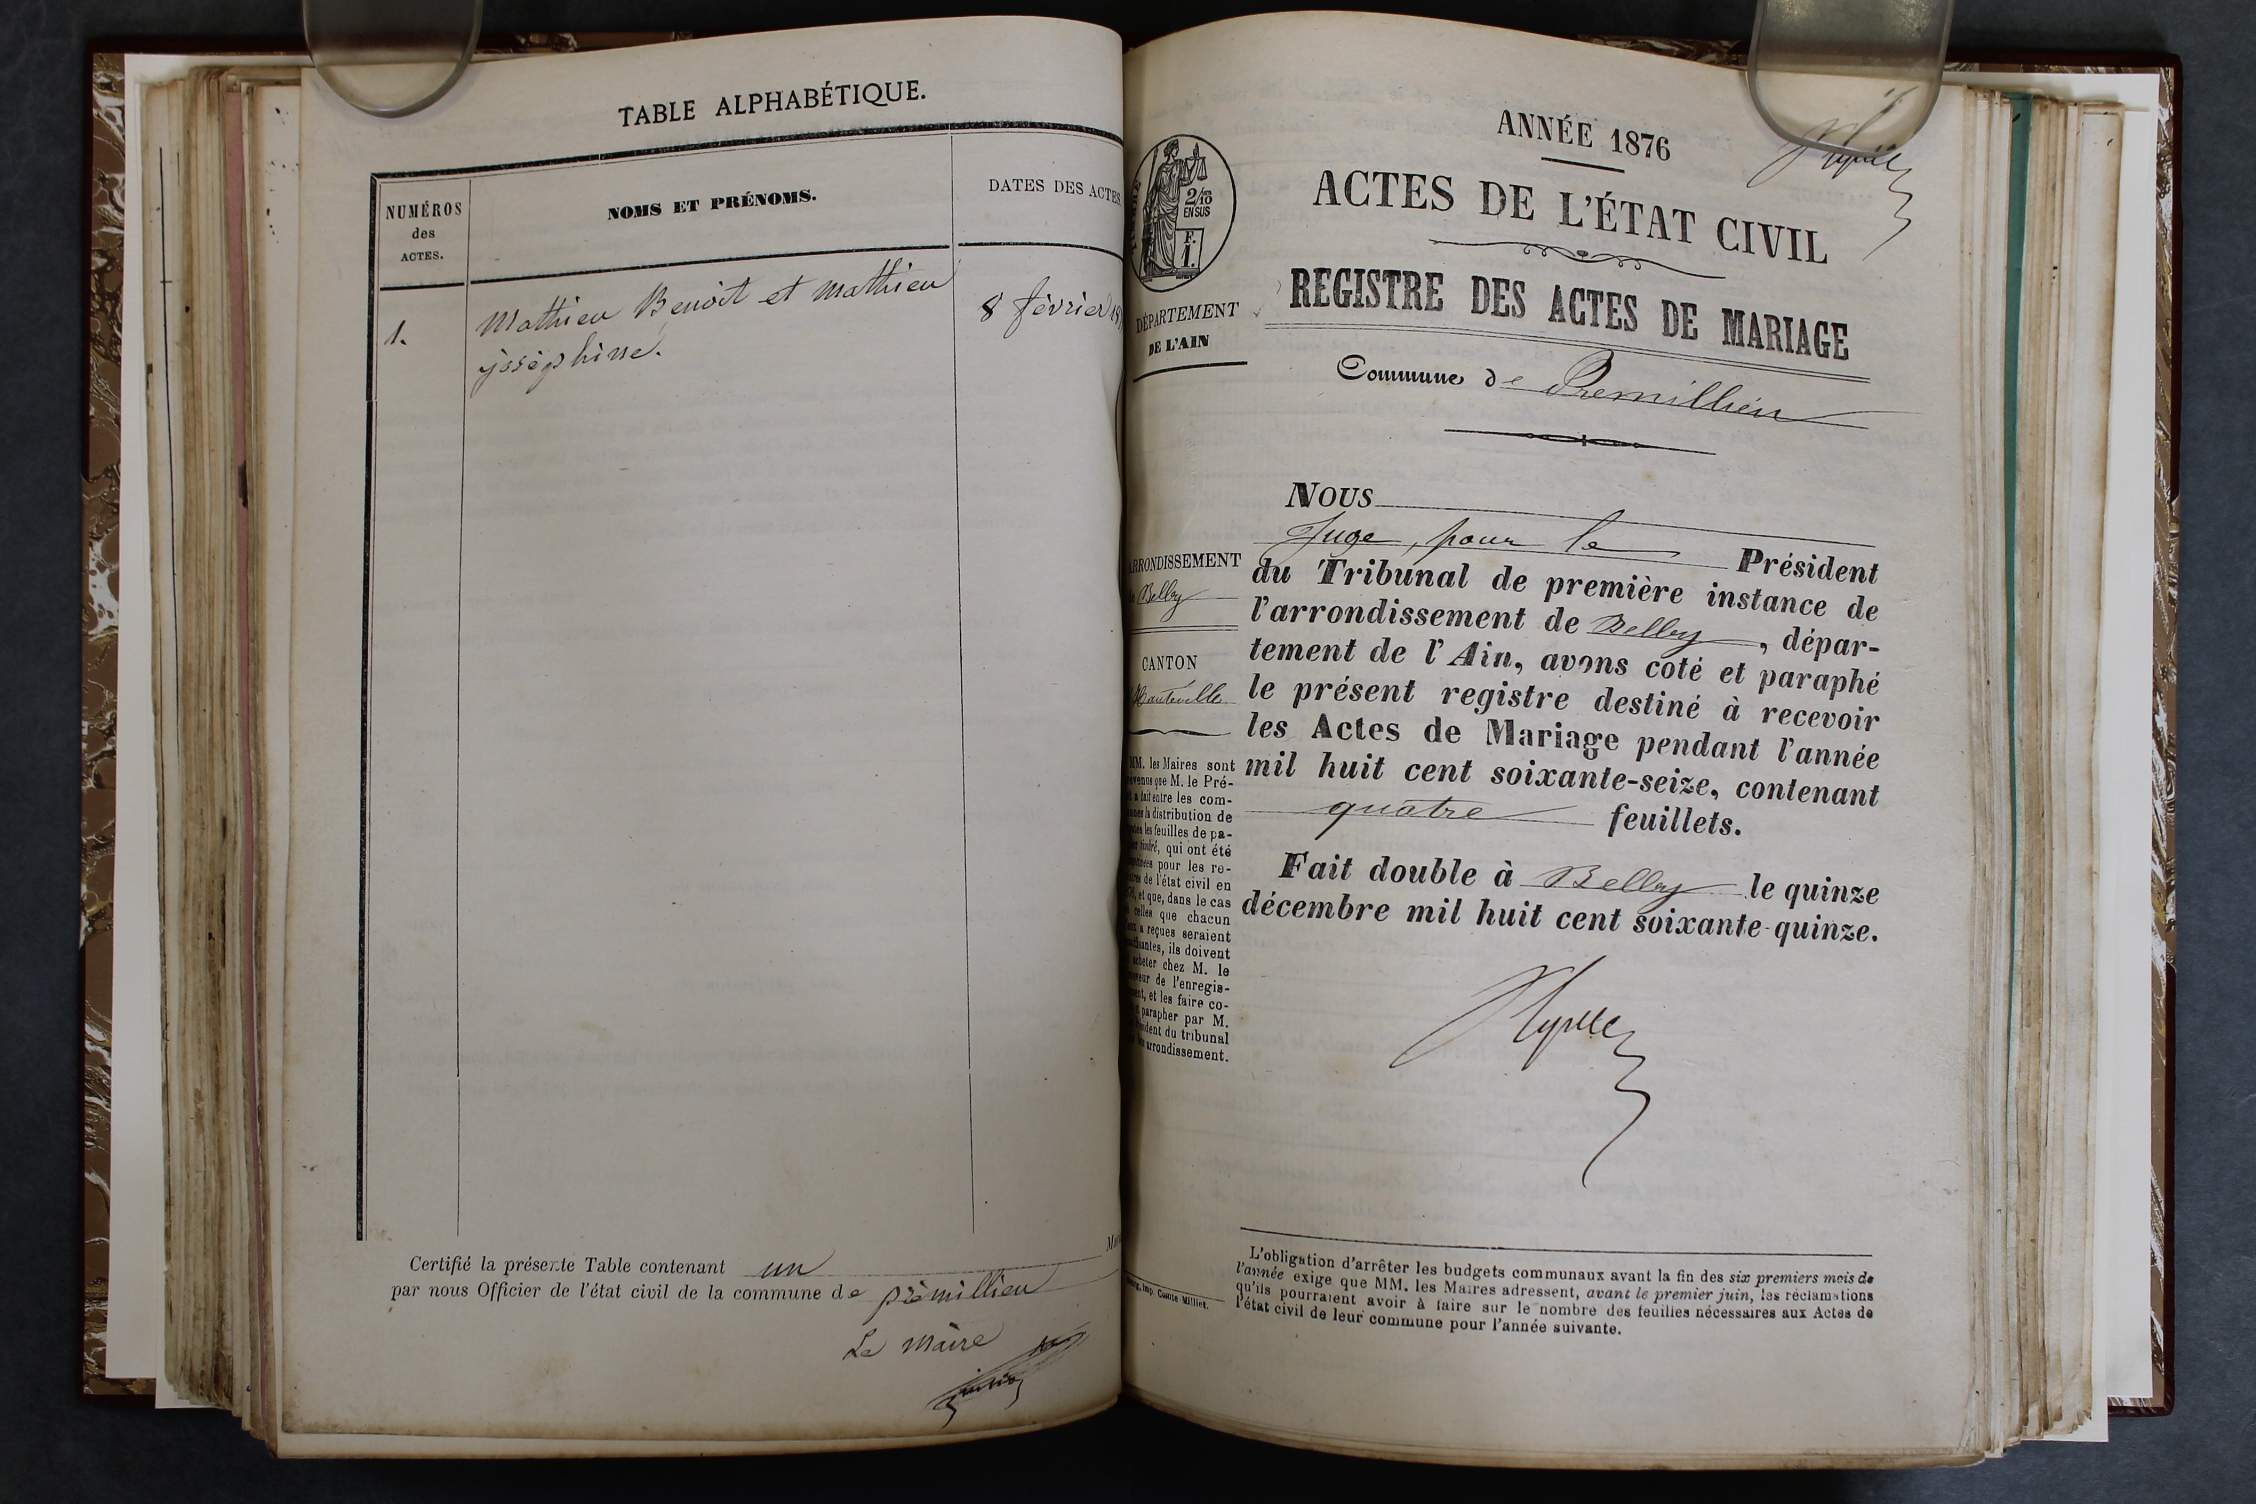 TABLE ALPHABÉTIQUE.
NUMÉROS
des
ACTES.
NOMS ET PRÉNOMS.
DATES DES ACTES
1.
Mathieu Benoit et Mathieu
joséphine.
8 février 18
Certifié la présente Table contenant un
par nous Officier de l'état civil de la commune de prémillieu
Le Maire
ANNÉE 1876
ACTES DE L'ÉTAT CIVIL
REGISTRE DES ACTES DE MARIAGE
Commune de Premillieu
2/10
EN SUS
F.
1.
DÉPARTEMENT
DE L'AIN
ARRONDISSEMENT
Belley
CANTON
Hauteville
MM. les Maires sont
que M. le Pré-
a fait entre les com-
la distribution de
les feuilles de pa-
timbré, qui ont été
pour les re-
de l'état civil en
et que, dans le cas
celles que chacun
a reçues seraient
ils doivent
acheter chez M. le
de l'enregis-
et les faire co-
parapher par M.
du tribunal
arrondissement.
NOUS
Juge, pour le Président
du Tribunal de première instance de
l'arrondissement de Belley, dépar-
tement de l'Ain, avons coté et paraphé
le présent registre destiné à recevoir
les Actes de Mariage pendant l'année
mil huit cent soixante-seize, contenant
quatre feuillets.
Fait double à Belley le quinze
décembre mil huit cent soixante-quinze.
Imp. Comte-Milliet.
L'obligation d'arrêter les budgets communaux avant la fin des six premiers mois de
l'année exige que MM. les Maires adressent, avant le premier juin, les réclamations
qu'ils pourraient avoir à faire sur le nombre des feuilles nécessaires aux Actes de
l'état civil de leur commune pour l'année suivante.